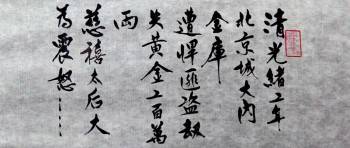 清光緒二年
北京城大內
金庫
遭悍匪盜劫
失黃金上百萬
両
慈禧太后大
為震怒……